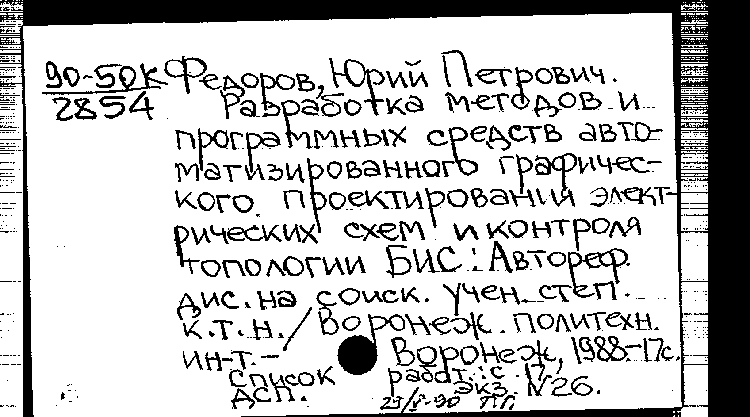 90-50К Федоров, Юрий Петрович.
2854 Разработка методов и
программных средств авто-
матизированного графичес-
кого проектирования элект-
рических схем и контроля
топологии БИС: Автореф.
дис. на соиск. учен. степ.
к.т.н./Воронеж. политехн.
ин-т. - Воронеж, 1988-17с.
Список работ.: с. 17.
ДСП. экз. №26.